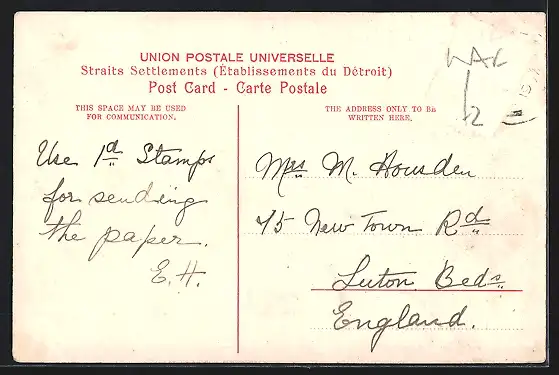 UNION POSTALE UNIVERSELLE
Straits Settlements (Établissements du Détroit)
Post Card - Carte Postale
THIS SPACE MAY BE USED
FOR COMMUNICATION.
THE ADDRESS ONLY TO BE
WRITTEN HERE.
Use 1d Stamps
for sending
the paper.
E. H.
Mrs M. Housden
75 New Town Rd
Luton Beds
England.